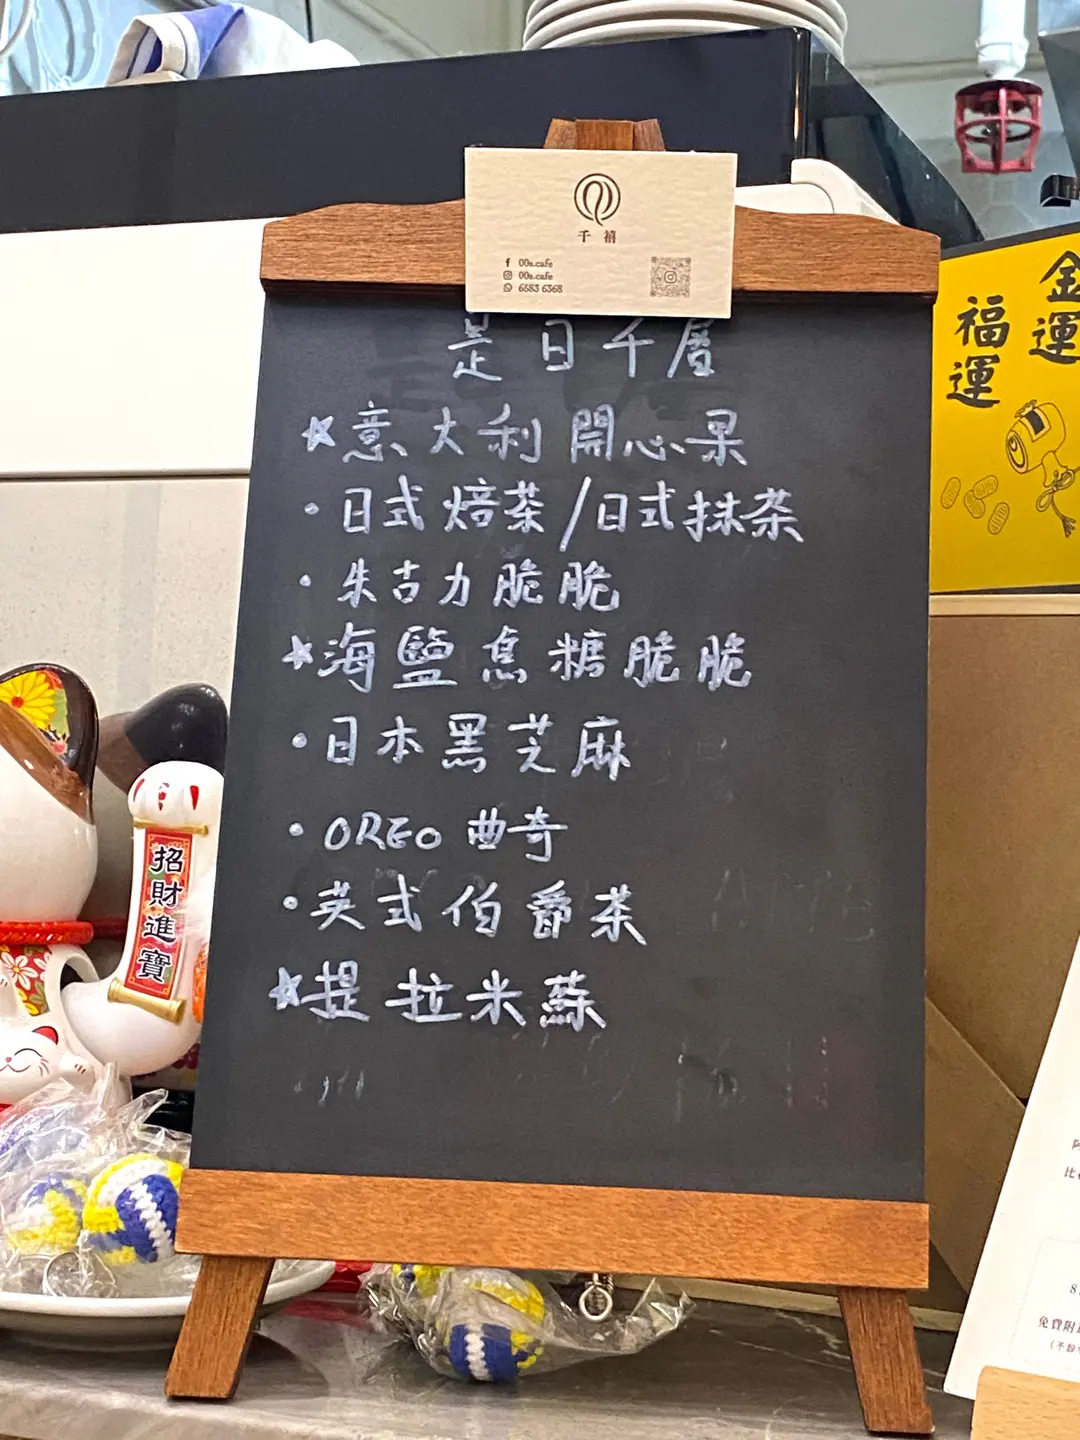 千禧
00s.cafe
00s.cafe
6583 6368
是日千層
意大利開心果
日式焙茶/日式抹茶
朱古力脆脆
海鹽焦糖脆脆
日本黑芝麻
OREO 曲奇
英式伯爵茶
提拉米蘇
金運
福運
招財進寶
免費附